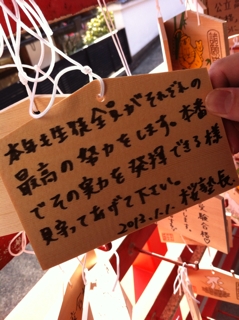 本年も生徒全員がそれぞれの
最高の努力をします。本番
でその実力を発揮できる様
見守ってあげて下さい。
2013.1.1.